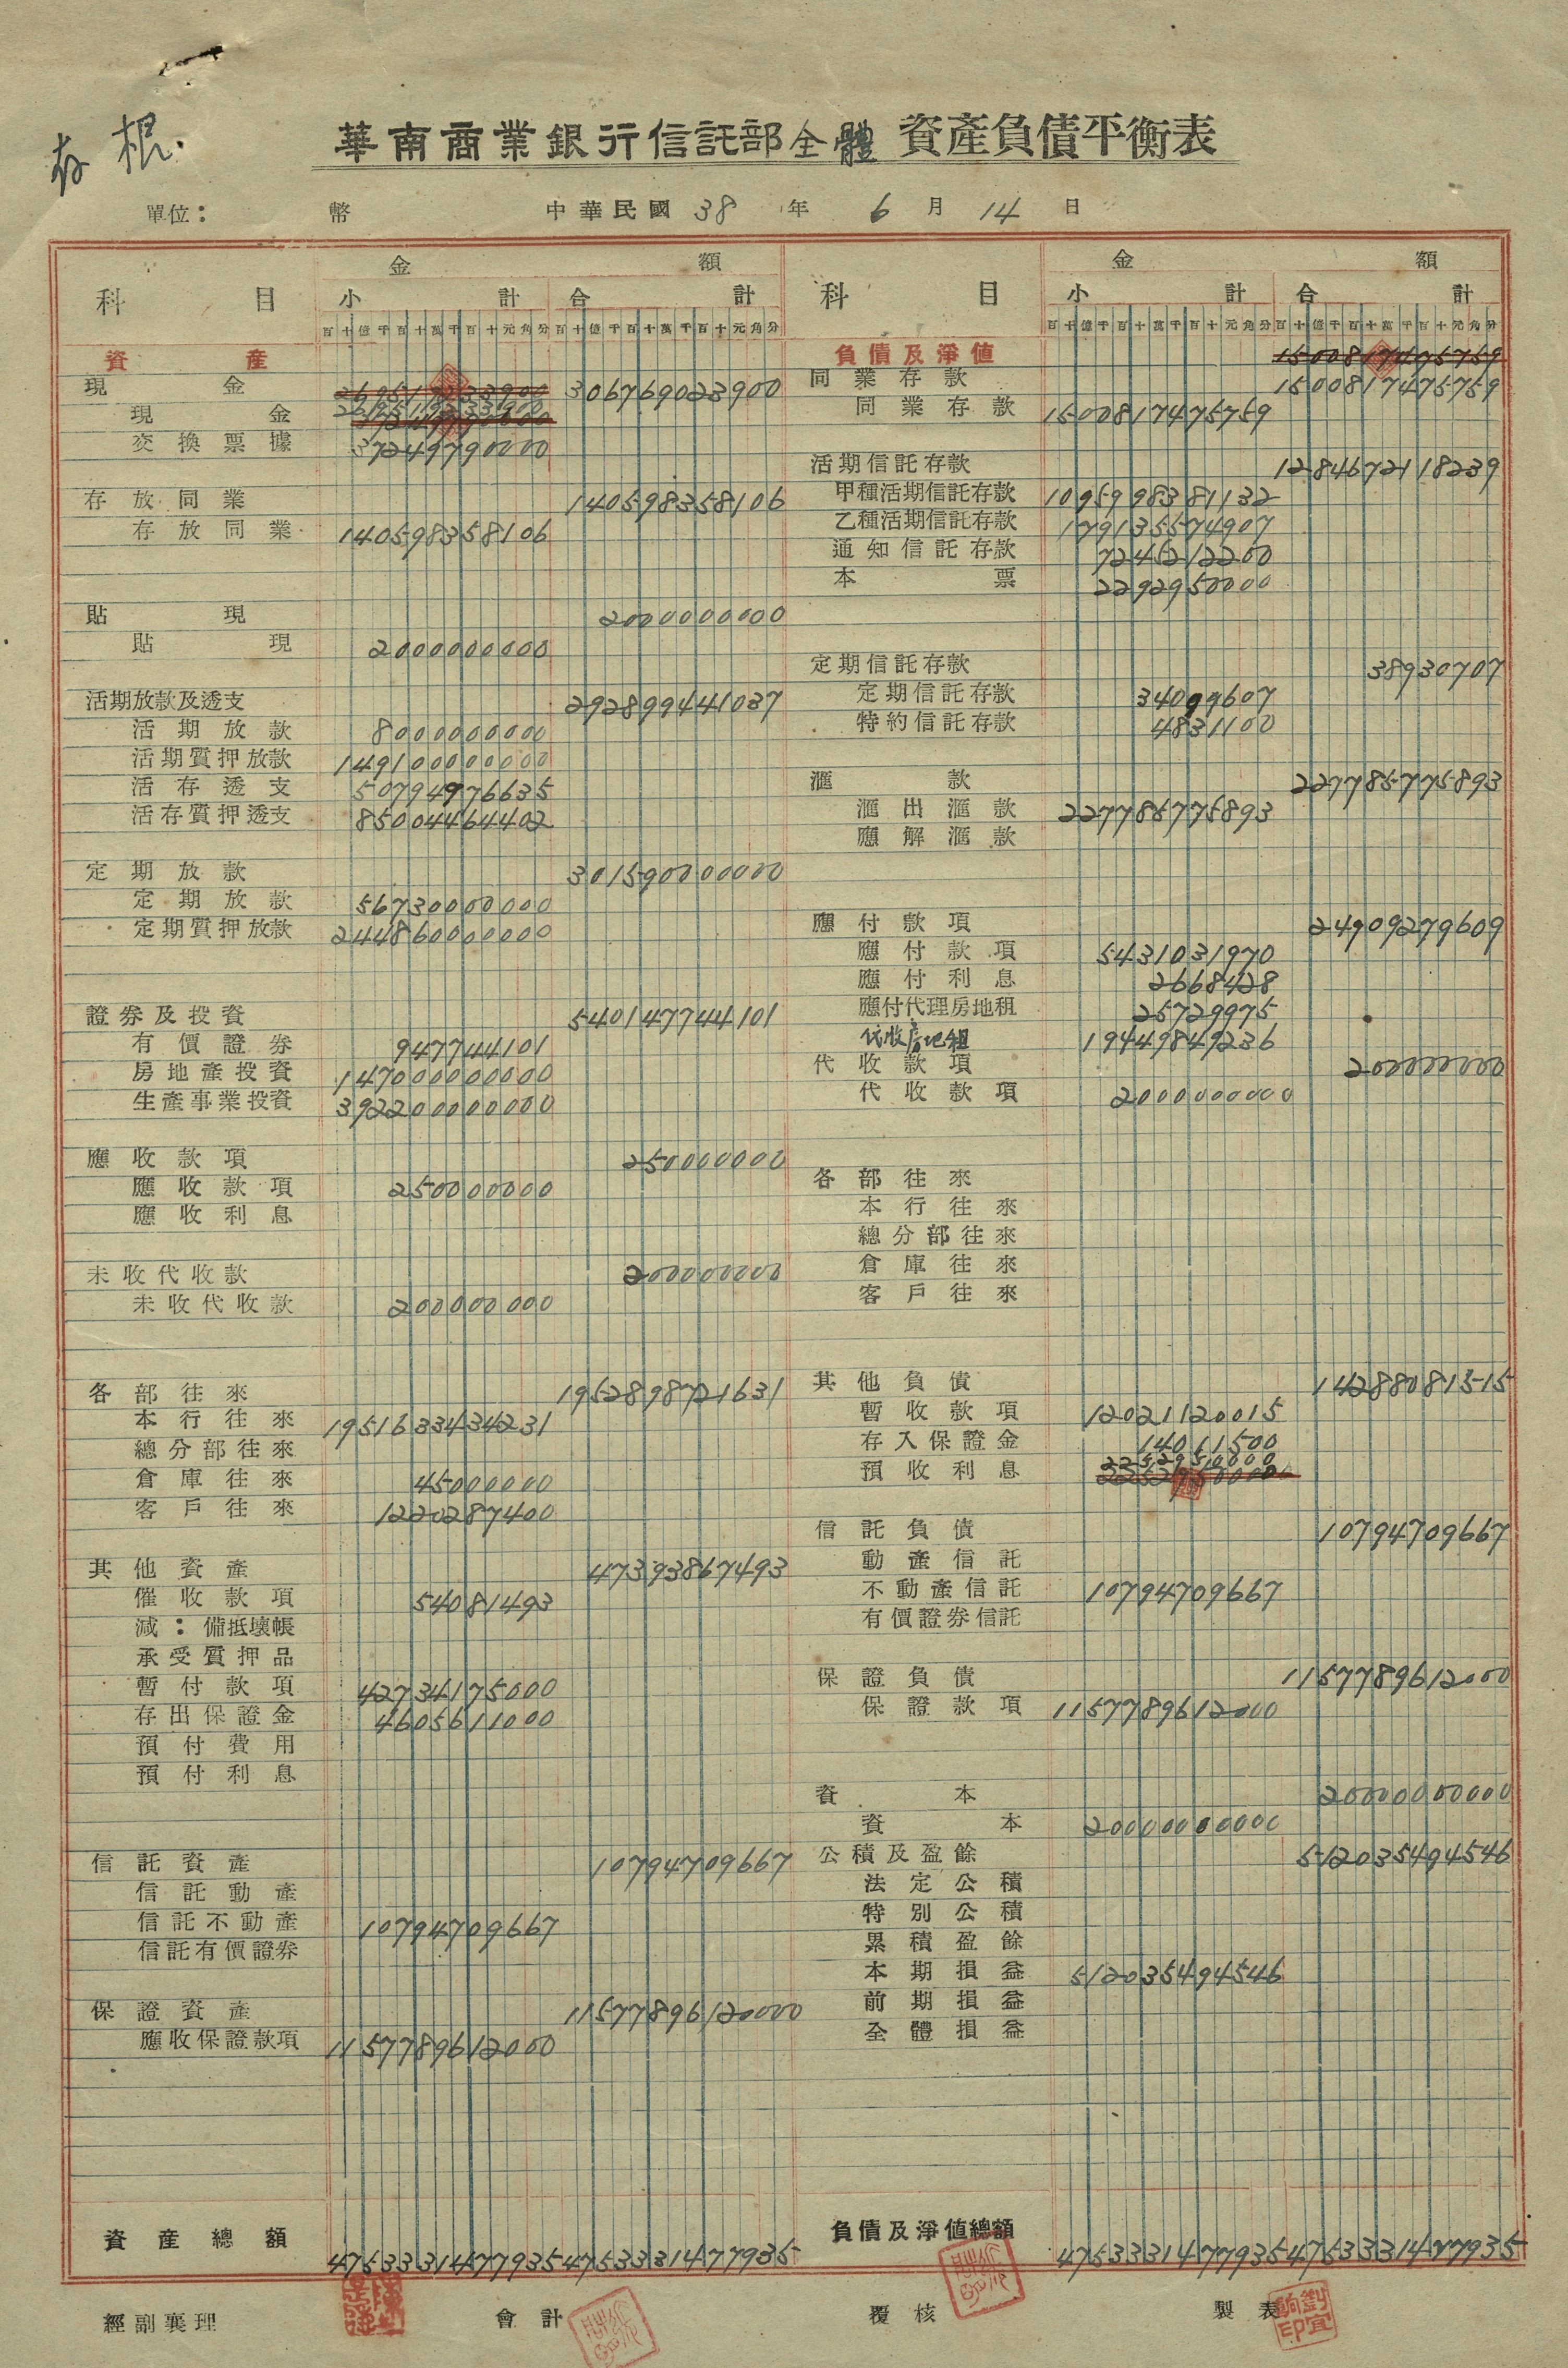 存根.
華南商業銀行信託部全體資產負債平衡表
單位： 幣 中華民國 38 年 6 月 14 日
科目 金額 科目 金額
小計 合計 小計 合計
百十億千百十萬千百十元角分 百十億千百十萬千百十元角分 百十億千百十萬千百十元角分 百十億千百十萬千百十元角分
資產
現金 306769023900
現金 269519233900
交換票據 37249790000
存放同業 140598358106
存放同業 140598358106
貼現 2000000000
貼現 2000000000
活期放款及透支 292899441037
活期放款 8000000000
活期質押放款 149100000000
活存透支 50794976635
活存質押透支 85004464402
定期放款 301590000000
定期放款 56730000000
定期質押放款 244860000000
證券及投資 540147744101
有價證券 947744101
房地產投資 147000000000
生產事業投資 392200000000
應收款項 250000000
應收款項 250000000
應收利息
未收代收款 200000000
未收代收款 200000000
各部往來 1952898721631
本行往來 1951633434231
總分部往來
倉庫往來 45000000
客戶往來 1220287400
其他資產 47393867493
催收款項 54081493
減：備抵壞帳
承受質押品
暫付款項 42734175000
存出保證金 4605611000
預付費用
預付利息
信託資產 10794709667
信託動產
信託不動產 10794709667
信託有價證券
保證資產 11577896120000
應收保證款項 1157789612000
資產總額 4753331477935 4753331477935
負債及淨值 1500817475759
同業存款 1500817475759
同業存款 1500817475759
活期信託存款 1284672118239
甲種活期信託存款 1095998381132
乙種活期信託存款 179135574907
通知信託存款 7245212200
本票 2292950000
定期信託存款 38930707
定期信託存款 34099607
特約信託存款 4831100
滙款 227785775893
滙出滙款 227785775893
應解滙款
應付款項 24909279609
應付款項 5431031970
應付利息 2668428
應付代理房地租 25729975
代收房地租 19449849236
代收款項 200000000
代收款項 2000000000
各部往來
本行往來
總分部往來
倉庫往來
客戶往來
其他負債 14288081515
暫收款項 12021120015
存入保證金 14011500
預收利息 2252950000
信託負債 10794709667
動產信託
不動產信託 10794709667
有價證券信託
保證負債 1157789612000
保證款項 1157789612000
資本 20000000000
資本 20000000000
公積及盈餘 512035494546
法定公積
特別公積
累積盈餘
本期損益 512035494546
前期損益
全體損益
負債及淨值總額 4753331477935 4753331477935
經副襄理 會計 覆核 製表